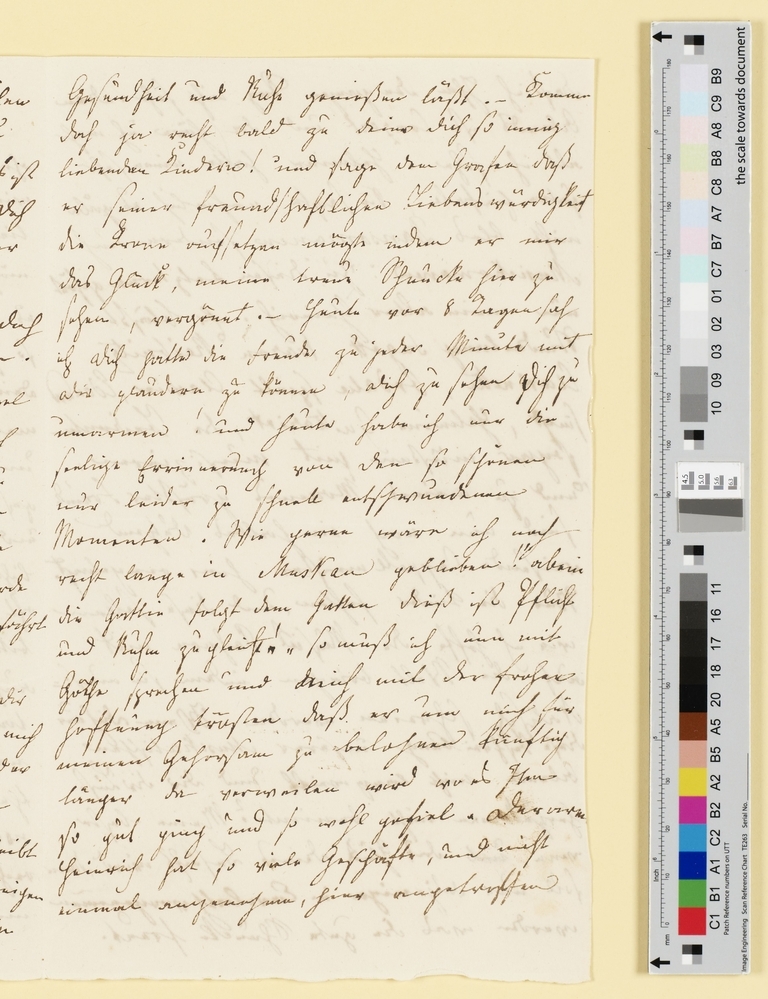 Gesundheit und Ruhe genießen läßt. – Komme
doch ja recht bald zu deinen dich so innig
liebenden Kindern! und sage dem Grafen daß
er seiner freundschaftlichen Liebenswürdigkeit
die Krone aufsetzen mögte indem er mir
das Glück, meine treue Schnucke hier zu
sehen, vergönnt. – Heute vor 8 Tagen sah
ich dich hatte die Freude zu jeder Minute mit
dir plaudern zu können, dich zu sehen dich zu
umarmen! und heute habe ich nur die
seelige Errinnerung von den so schönen
nur leider zu schnell entschwundenen
Momenten. Wie gerne wäre ich noch
recht lange in Muskau geblieben!! allein
die Gattin folgt dem Gatten dieß ist Pflicht
und Ruhm zugleich! so muß ich nun mit
Göthe sprechen und mich mit der frohen
Hoffnung trösten daß er um mich für
meinen Gehorsam zu belohnen künftig
länger da verweilen wird wo es Ihm
so gut ging und so wohl gefiel. Der arme
Heinrich hat so viele Geschäfte, und nicht
einmal angenehm, hier angetroffen
dich
mich
der
the scale towards document
B9
C9
A8
B8
C8
A7
B7
C7
01
02
03
09
10
11
16
17
18
20
A5
B5
A2
B2
C2
A1
B1
C1
Image Engineering Scan Reference Chart TE263 Serial No.
Patch Reference numbers on UTT
Inch
mm